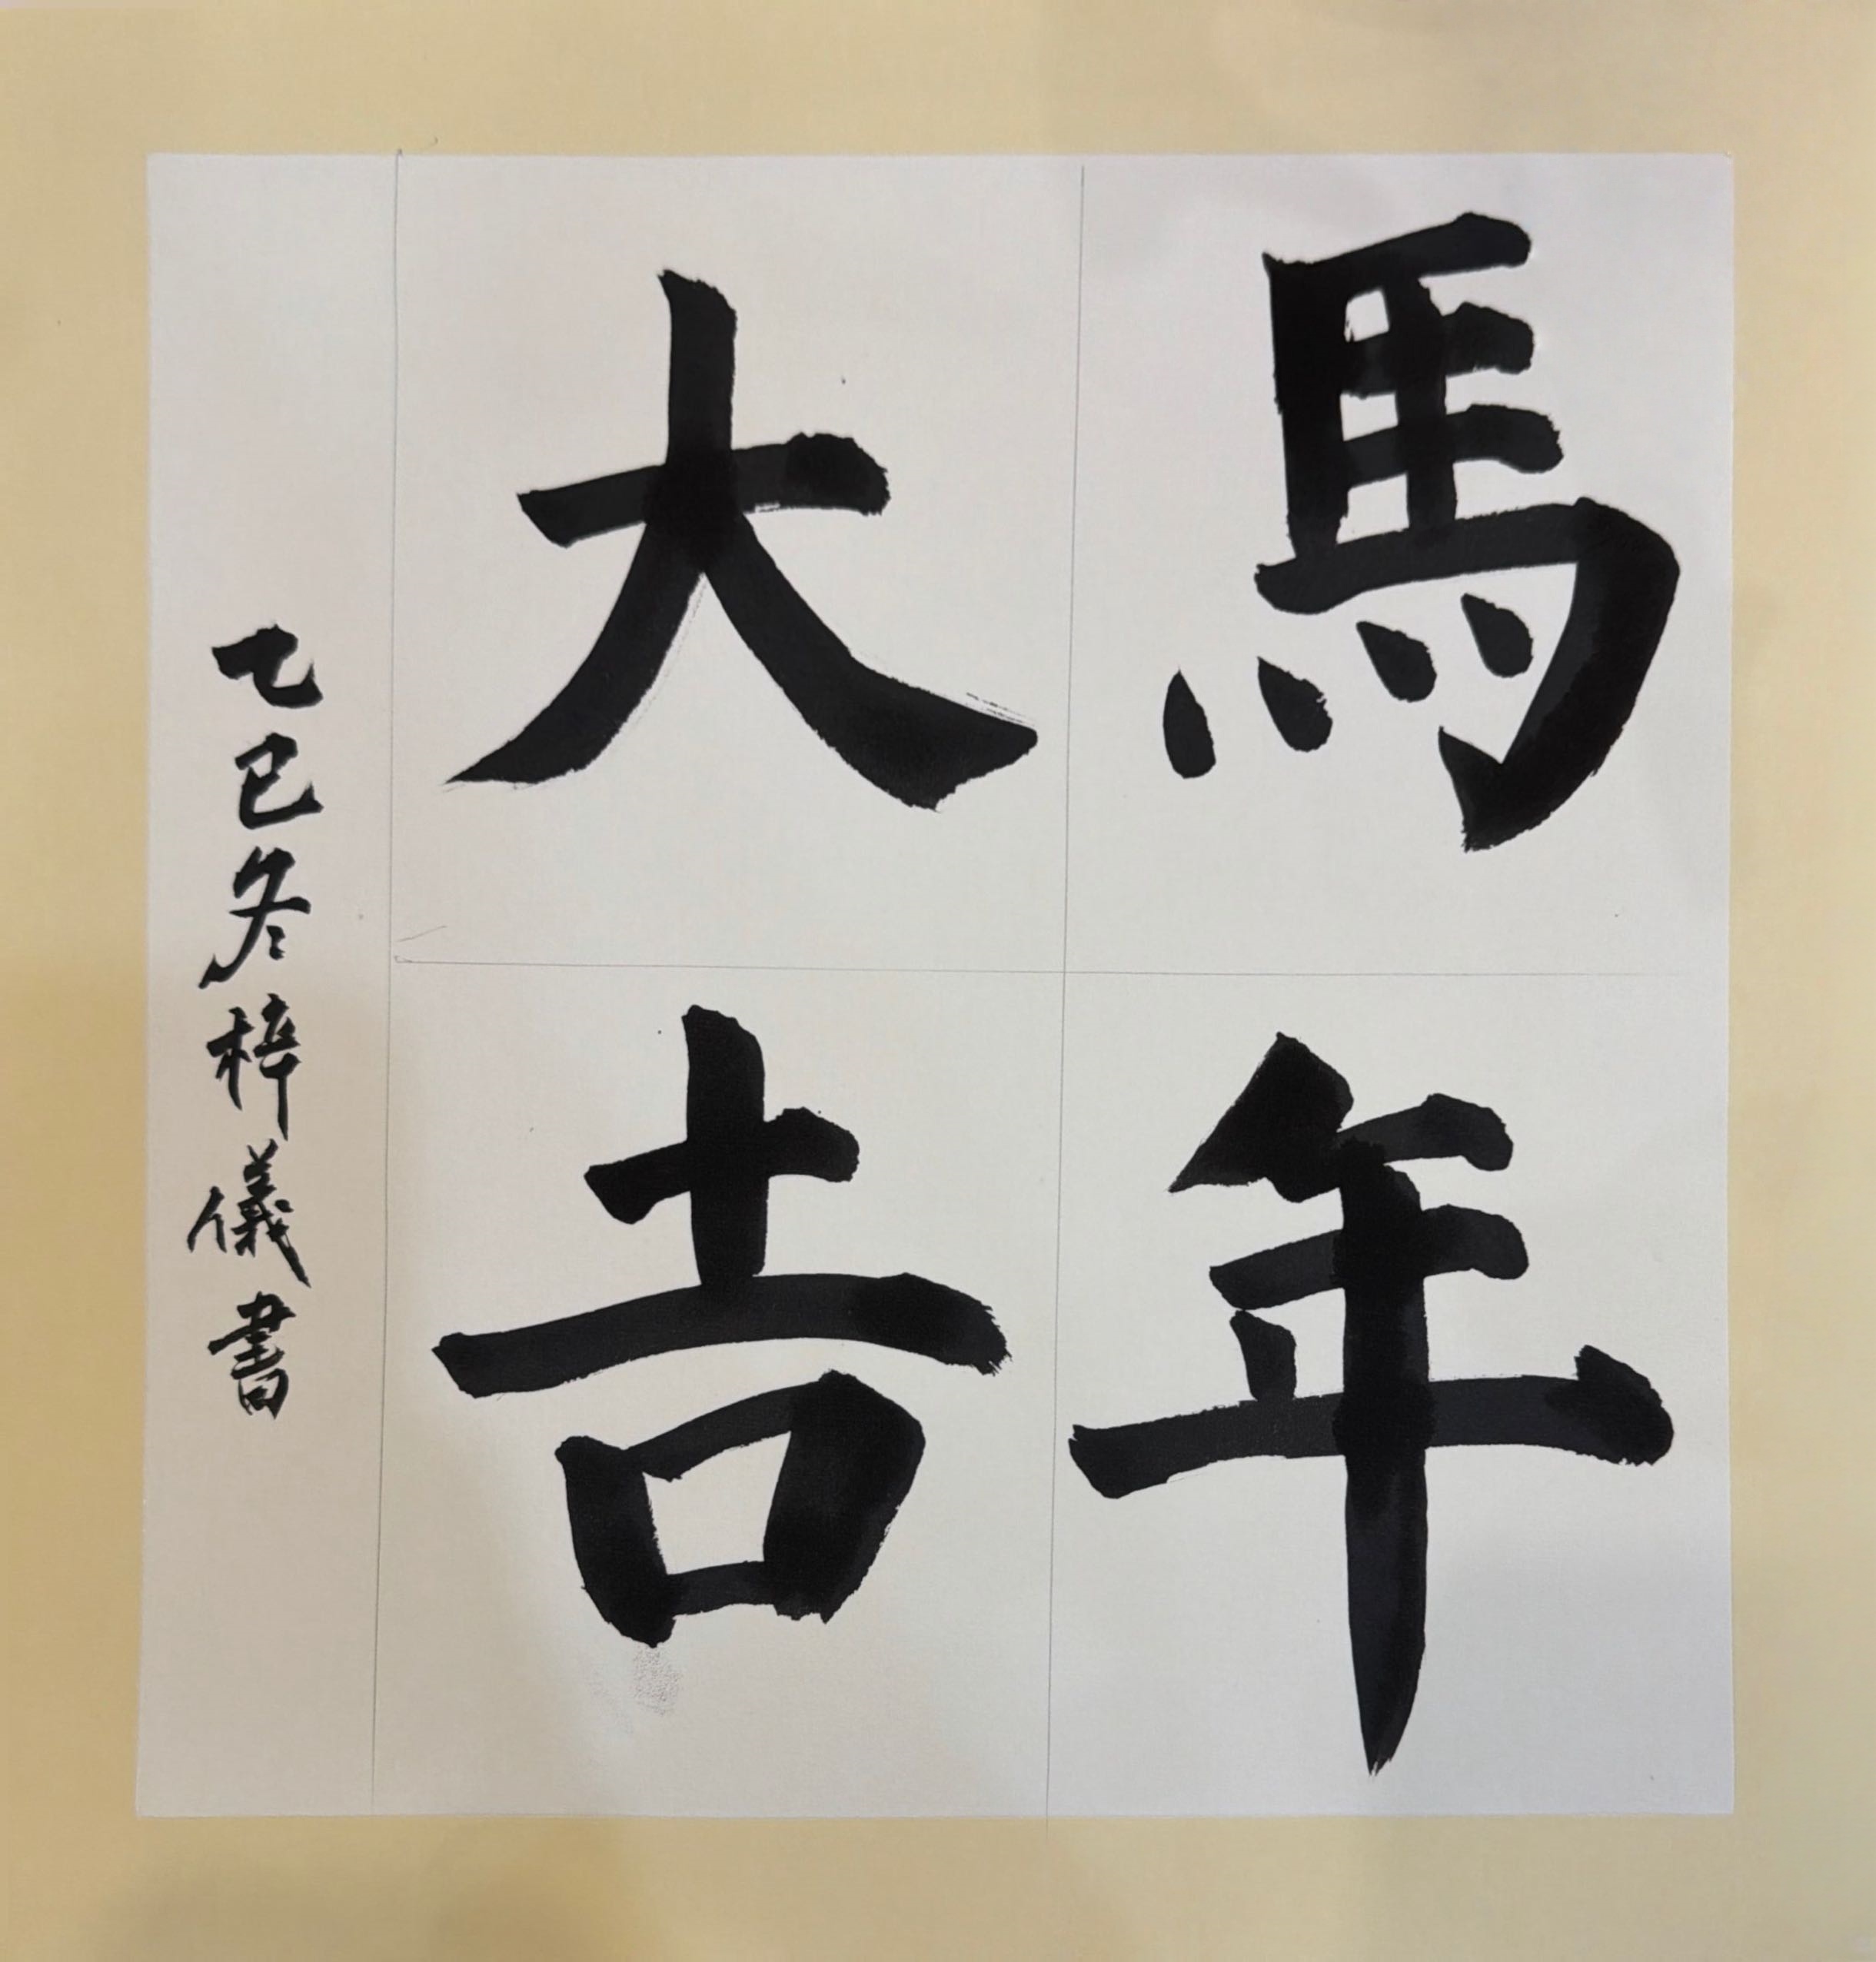 馬年
大吉
乙巳冬梓儀書